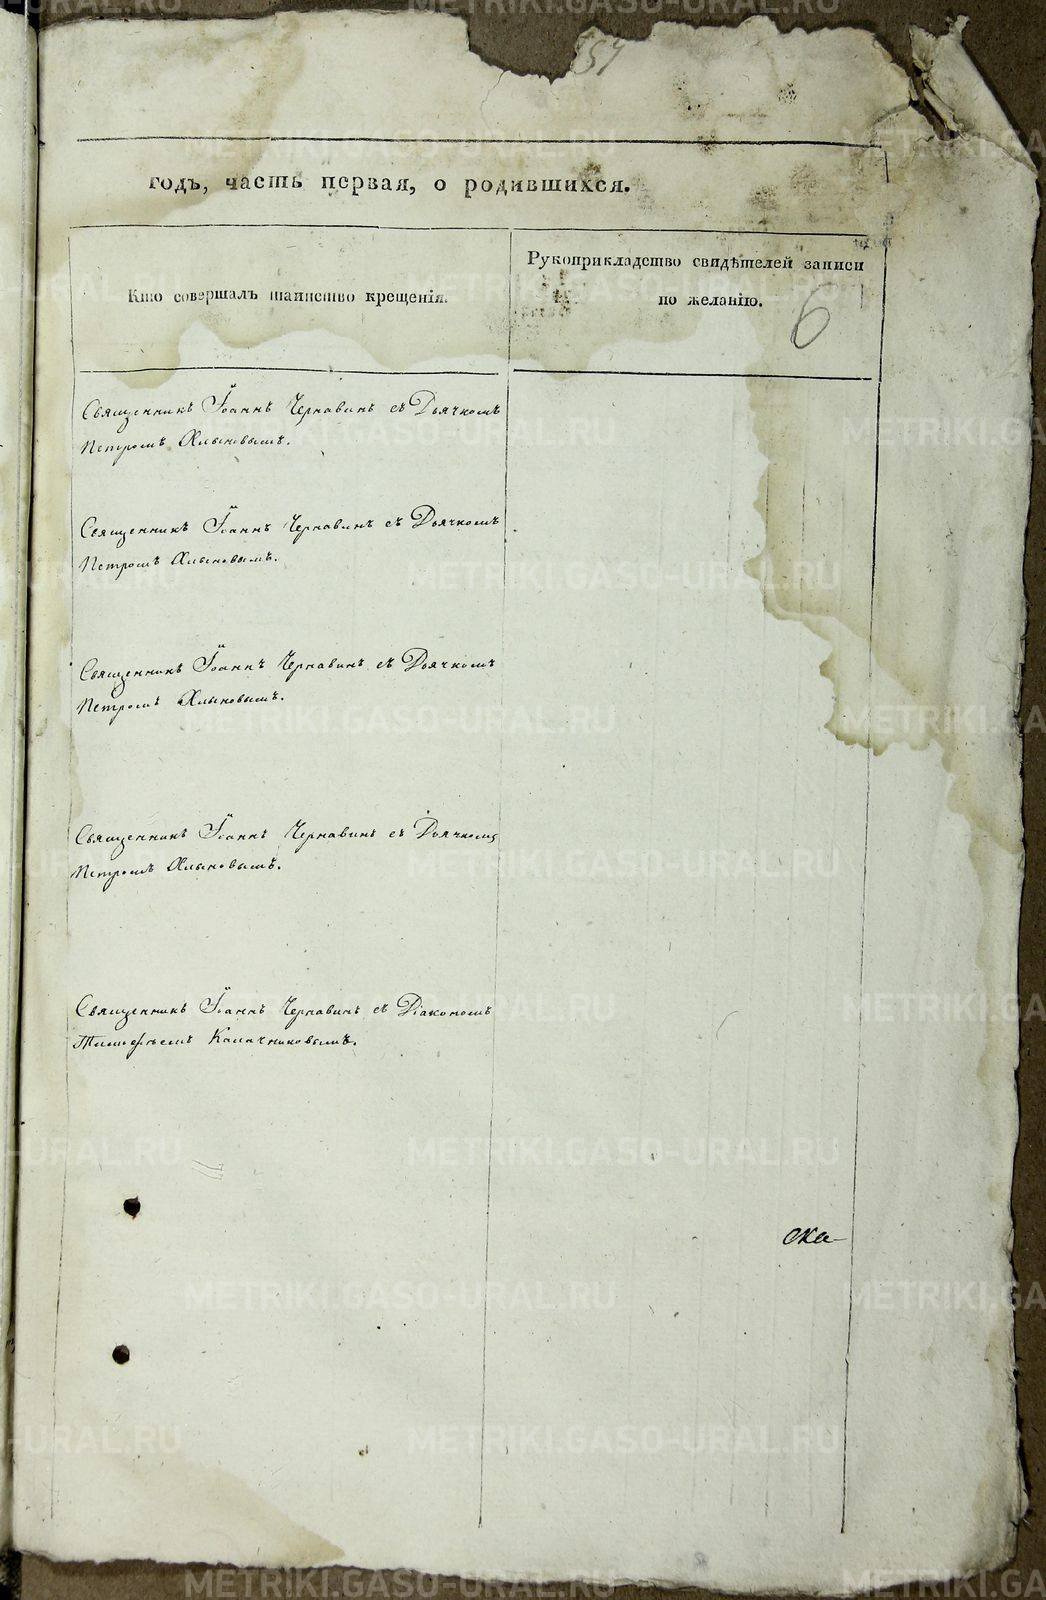 57
годъ, часть первая, о родившихся.
Кто совершалъ таинство крещенія.
Рукоприкладство свидѣтелей записи
по желанію.
6
Священникъ Іоаннъ Чернавинъ съ Дьячкомъ
Петромъ Хлыновымъ.
Священникъ Іоаннъ Чернавинъ съ Дьячкомъ
Петромъ Хлыновымъ.
Священникъ Іоаннъ Чернавинъ съ Дьячкомъ
Петромъ Хлыновымъ.
Священникъ Іоаннъ Чернавинъ съ Дьячкомъ
Петромъ Хлыновымъ.
Священникъ Іоаннъ Чернавинъ съ Діакономъ
Тимофеемъ Калачниковымъ.
ска-
METRIKI.GASO-URAL.RU